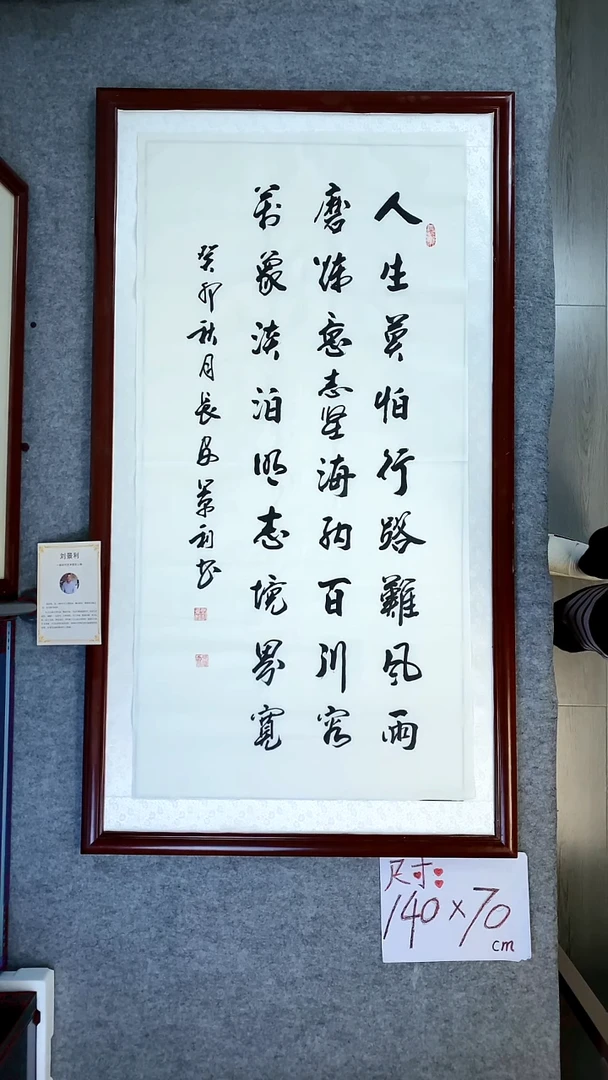 人生莫怕行路難風雨
磨煉意志坚海納百川容
萬象淡泊明志境界寬
癸卯秋月長安景利书
刘景利
尺寸:
140×70
cm